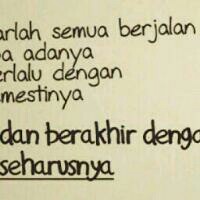 arlah semua berjalan
a adanya
erlalu dengan
mestinya
dan berakhir denga
seharusnya